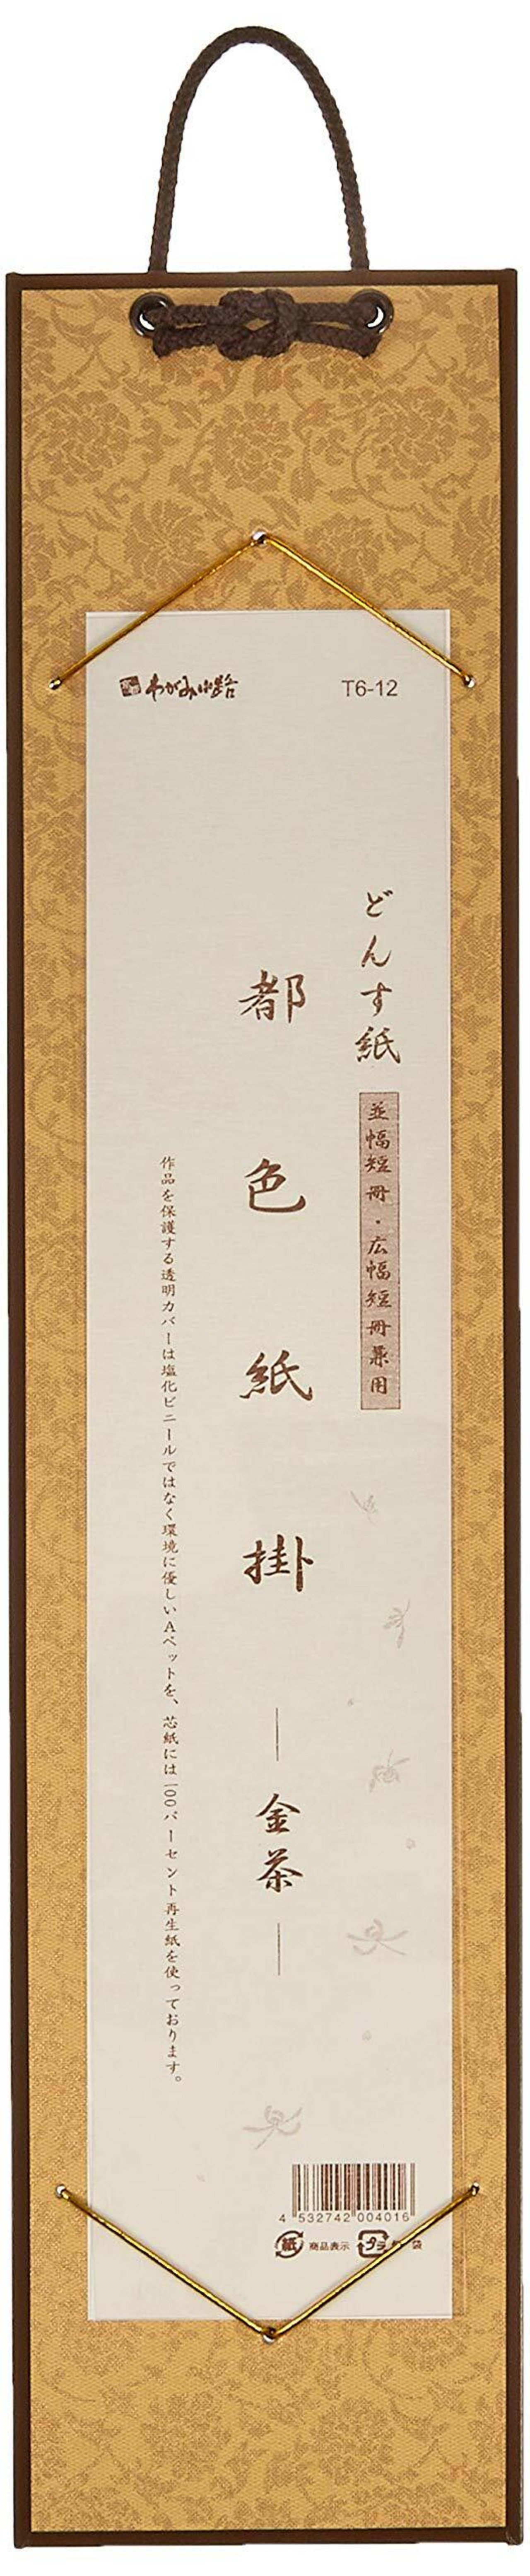 わがみ小路
T6-12
どんす紙
並幅短冊・広幅短冊兼用
都色紙掛
金茶
作品を保護する透明カバーは塩化ビニールではなく環境に優しいAペットを、芯紙には100パーセント再生紙を使っております。
4 532742 004016
紙 商品表示 プラ 袋